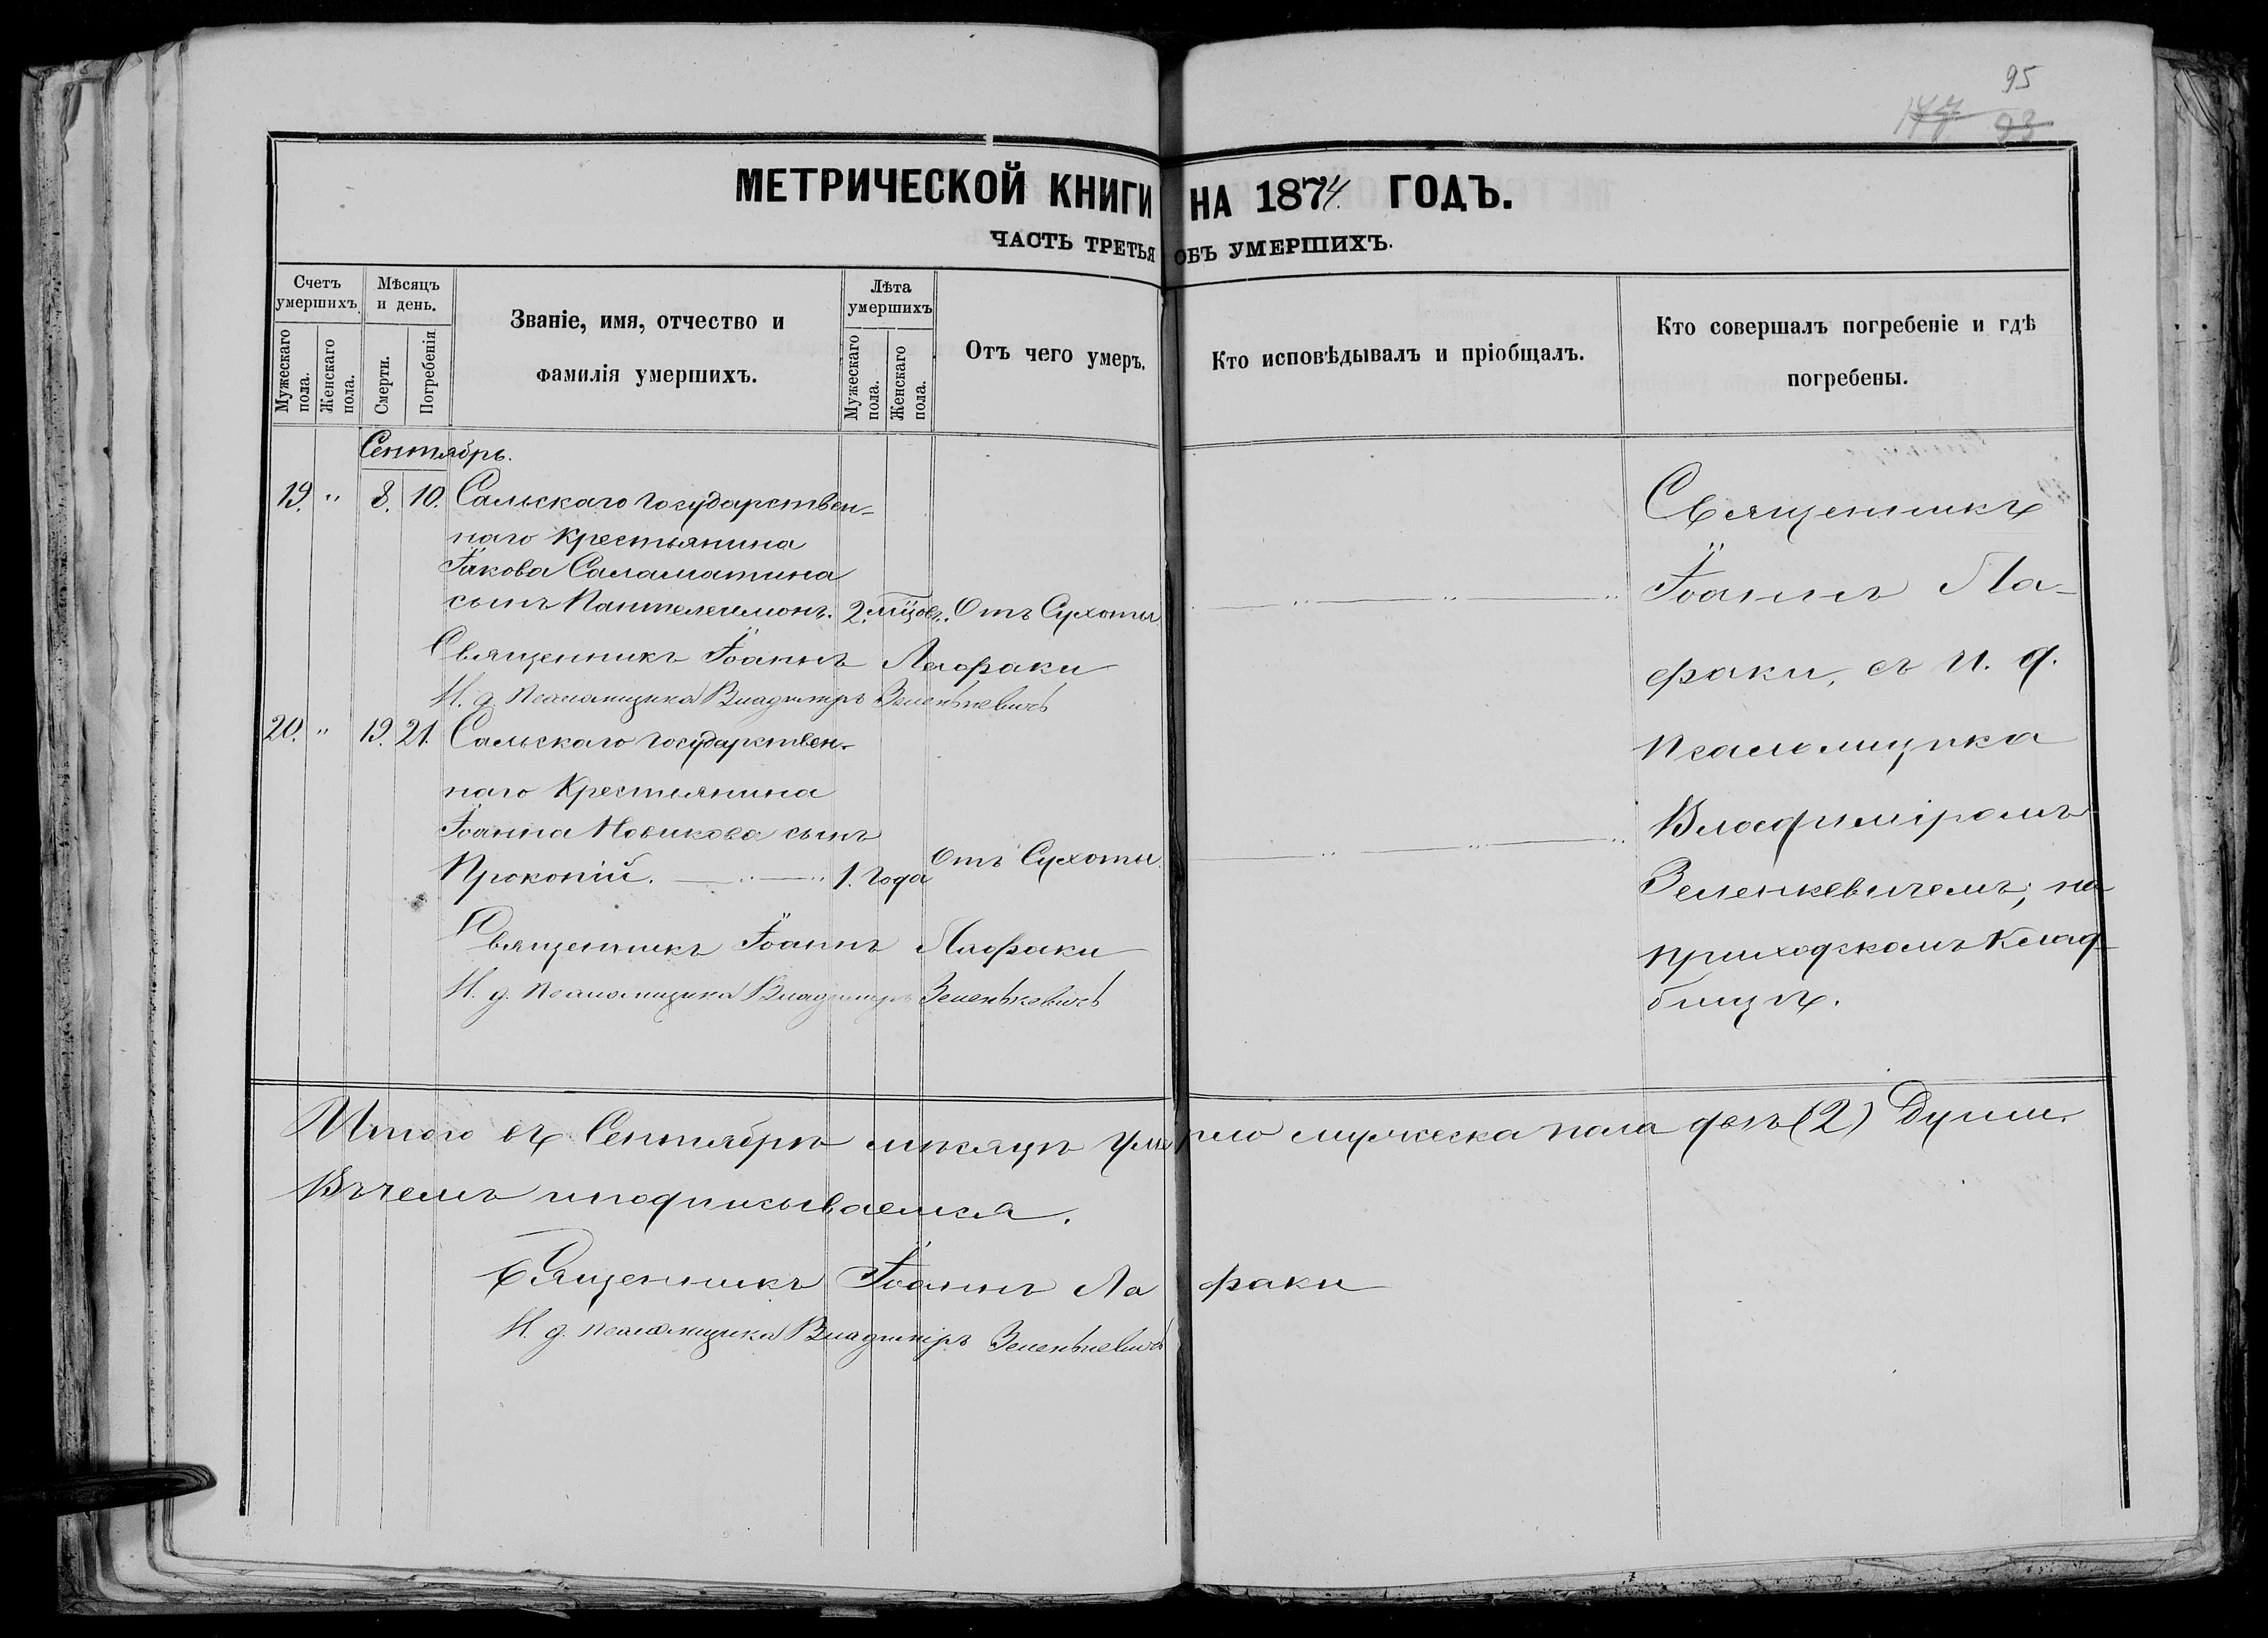 95
177 93
МЕТРИЧЕСКОЙ КНИГИ НА 1874. ГОДЪ.
ЧАСТЬ ТРЕТЬЯ ОБЪ УМЕРШИХЪ.
Счетъ умершихъ.
Мужескаго пола.
Женскаго пола.
Мѣсяцъ и день.
Смерти.
Погребенія
Званіе, имя, отчество и
фамилія умершихъ.
Лѣта умершихъ
Мужескаго пола.
Женскаго пола.
Отъ чего умеръ.
Кто исповѣдывалъ и пріобщалъ.
Кто совершалъ погребеніе и гдѣ
погребены.
Сентябрь.
19. " 8. 10. Сальскаго Государствен-
наго Крестьянина
Іакова Саламатина
сынъ Пантелеимонъ. 2. мѣцовъ. Отъ Сухоты
Священникъ Іоаннъ Лафаки
И. д. Псаломщика Владиміръ Зеленкевичъ
20. " 19. 21. Сальскаго Государствен-
наго Крестьянина
Іоанна Новикова сынъ
Прокопій. 1. года Отъ Сухоты.
Священникъ Іоаннъ Лафаки
И. д. Псаломщика Владиміръ Зеленькевичъ
Священникъ
Іоаннъ Ла-
факи, съ и. д.
Псаломщика
Владиміромъ
Зеленкевичемъ, на
приходскомъ клад-
бищѣ.
Итого въ Сентябрѣ мѣсяцѣ умерло мужеска пола двѣ (2) Души.
Въ чемъ и подписываемся.
Священникъ Іоаннъ Лафаки
И. д. Псаломщика Владиміръ Зеленькевичъ